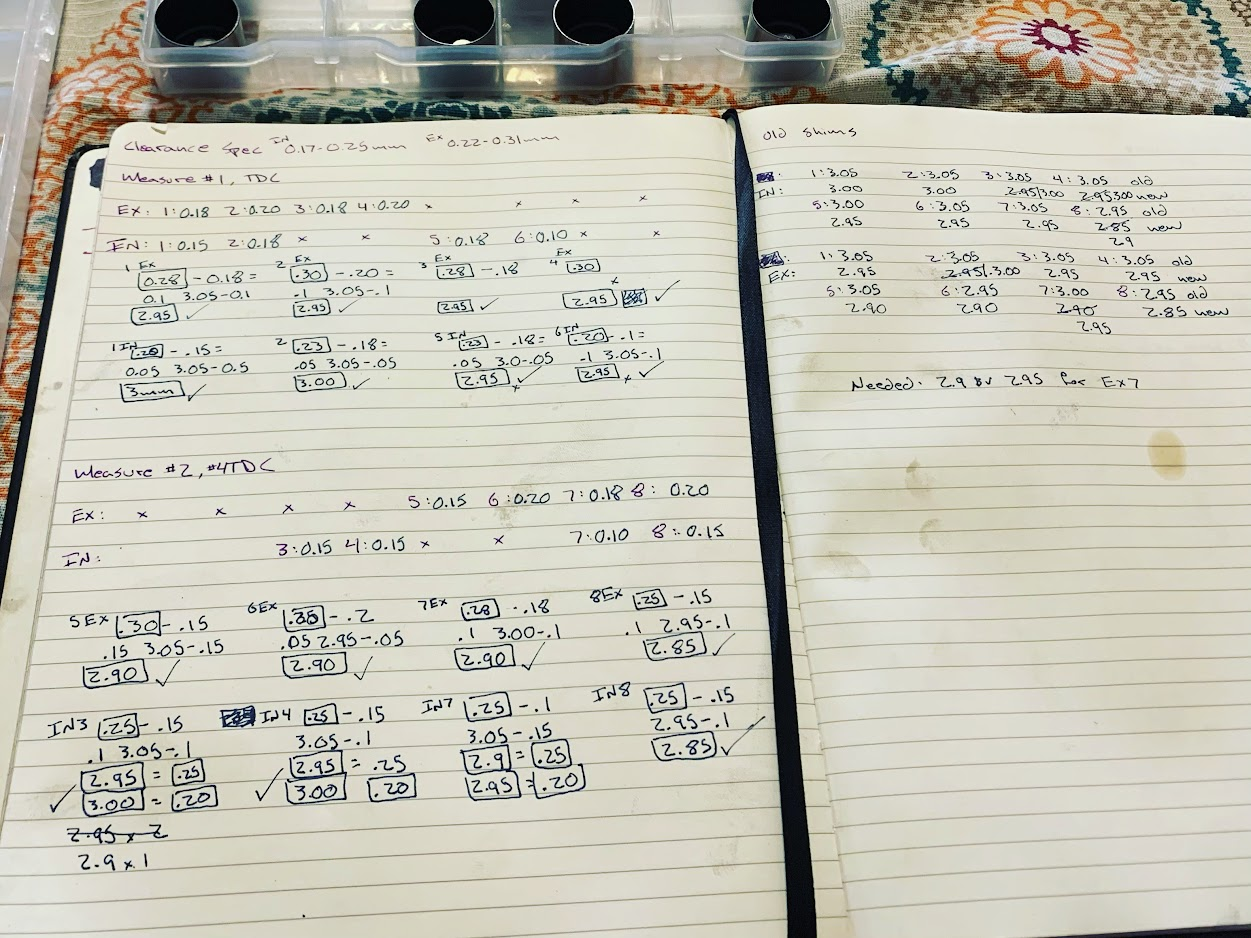 Clearance Spec IN 0.17-0.25mm Ex 0.22-0.31mm
Measure #1, TDC
EX: 1:0.18 2:0.20 3:0.18 4:0.20 x x x x
IN: 1:0.15 2:0.18 x x 5:0.18 6:0.10 x x
1 Ex 2 Ex 3 Ex 4 Ex
0.28 - 0.18 = .30 - .20 = .28 - .18 .30
0.1 3.05-0.1 .1 3.05-.1 x
2.95 ✓ 2.95 ✓ 2.95 ✓ 2.95 ✓
1 IN 2 5 IN 6 IN
.20 - .15 = .23 - .18 = .23 - .18 = .20 - .1 =
0.05 3.05-0.5 .05 3.05-.05 .05 3.0-.05 .1 3.05-.1
3mm ✓ 3.00 ✓ 2.95 x ✓ 2.95 x ✓
Measure #2, #4TDC
EX: x x x x 5:0.15 6:0.20 7:0.18 8: 0.20
IN: 3:0.15 4:0.15 x x 7:0.10 8:0.15
5 EX .30 - .15 6 EX - .2 7 EX .28 - .18 8 EX .25 - .15
.15 3.05-.15 .05 2.95-.05 .1 3.00-.1 .1 2.95-.1
2.90 ✓ 2.90 ✓ 2.90 ✓ 2.85 ✓
IN3 .25 - .15 IN4 .25 - .15 IN7 .25 - .1 IN8 .25 - .15
.1 3.05-.1 3.05-.1 3.05-.15 2.95-.1
2.95 = .25 2.95 = .25 2.9 = .25 2.85 ✓
✓ 3.00 = .20 ✓ 3.00 .20 2.95 = .20
2.95 x 2
2.9 x 1
Old Shims
1:3.05 2:3.05 3:3.05 4:3.05 old
IN: 3.00 3.00 2.95/3.00 2.95 3.00 new
5:3.00 6:3.05 7:3.05 8:2.95 old
2.95 2.95 2.95 2.85 new
2.9
1:3.05 2:3.05 3:3.05 4:3.05 old
EX: 2.95 2.95/.3.00 2.95 2.95 new
5:3.05 6:2.95 7:3.00 8:2.95 old
2.90 2.90 2.90 2.85 new
2.95
Needed: 2.9 or 2.95 for Ex7